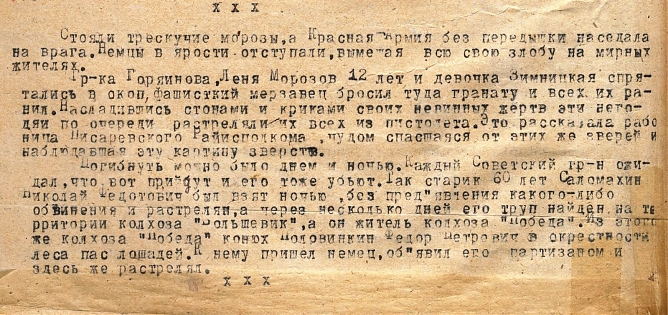 х х х
Стояли трескучие морозы, а Красная Армия без передышки наседала
на врага. Немцы в ярости отступали, вымещая всю свою злобу на мирных
жителях.
Гр-ка Горяинова, Леня Морозов 12 лет и девочка Зимницкая спря-
тались в окоп, фашисткий мерзавец бросил туда гранату и всех их ра-
нил. Насладившись стонами и криками своих невинных жертв эти него-
дяи по очереди растреляли их всех из пистолета. Это рассказала рабо
ница Писаревского Райисполкома, чудом спасшаяся от этих же зверей и
наблюдавшая эту картину зверств.
Погибнуть можно было днем и ночью. Каждый Советский гр-н ожи-
дал, что вот прийдут и его тоже убьют. Так старик 60 лет Саломахин
Николай Федотович был взят ночью, без пред"явления какого-либо
обвинения и растрелян, а через несколько дней его труп найден на те
рритории колхоза "Большевик", а он житель колхоза "Победа". Из этого
же колхоза "Победа" конюх Половинкин Федор Петрович в окрестности
леса пас лошадей. К нему пришел немец, об"явил его партизаном и
здесь же растрелял.
х х х